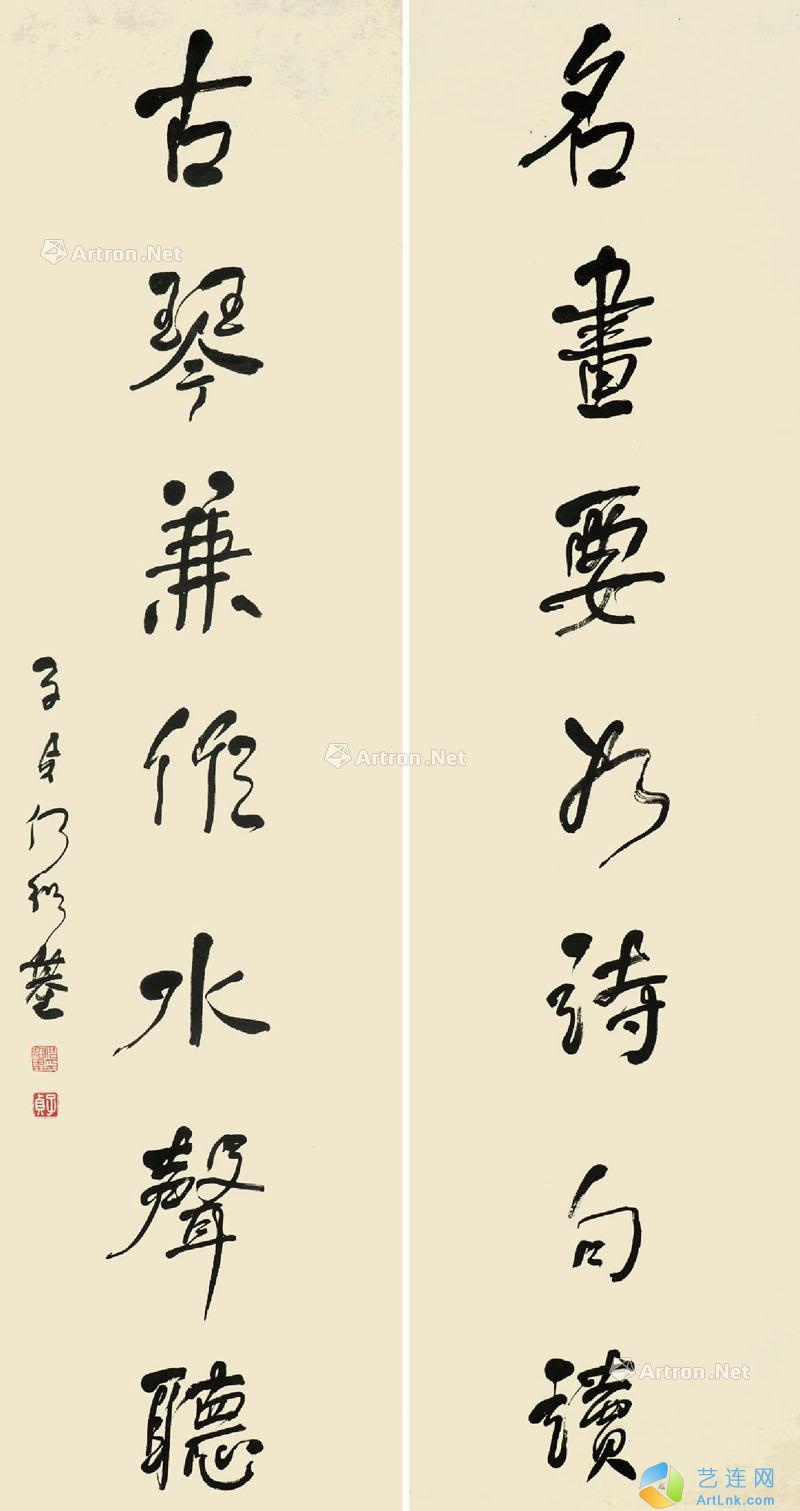 名畫要如詩句讀
古琴兼作水聲聽
子貞何紹基
子貞
Artron.Net
Artron.Net
Artron.Net
艺连网
ArtLnk.com